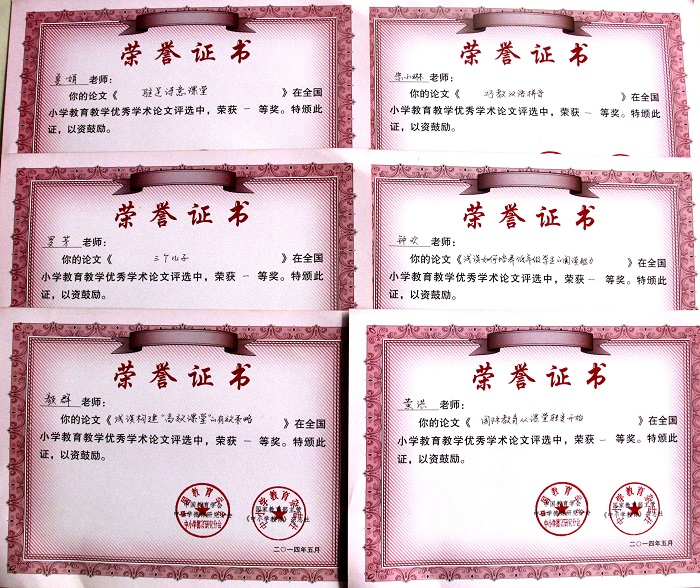 荣誉证书
夏娟 老师：
你的论文《驻足诗意课堂》在全国
小学教育教学优秀学术论文评选中，荣获 一 等奖。特颁此
证，以资鼓励。
荣誉证书
老师：
你的论文《巧教汉语拼音》在全国
小学教育教学优秀学术论文评选中，荣获 一 等奖。特颁此
证，以资鼓励。
荣誉证书
罗芳 老师：
你的论文《三个儿子》在全国
小学教育教学优秀学术论文评选中，荣获 一 等奖。特颁此
证，以资鼓励。
荣誉证书
钟欢 老师：
你的论文《浅谈如何培养低年级学生的阅读能力》在全国
小学教育教学优秀学术论文评选中，荣获 一 等奖。特颁此
证，以资鼓励。
荣誉证书
敖群 老师：
你的论文《浅谈构建“高效课堂”的有效策略》在全国
小学教育教学优秀学术论文评选中，荣获 一 等奖。特颁此
证，以资鼓励。
二〇一四年五月
荣誉证书
黄洪 老师：
你的论文《国际教育从课堂驻足开始》在全国
小学教育教学优秀学术论文评选中，荣获 一 等奖。特颁此
证，以资鼓励。
二〇一四年五月